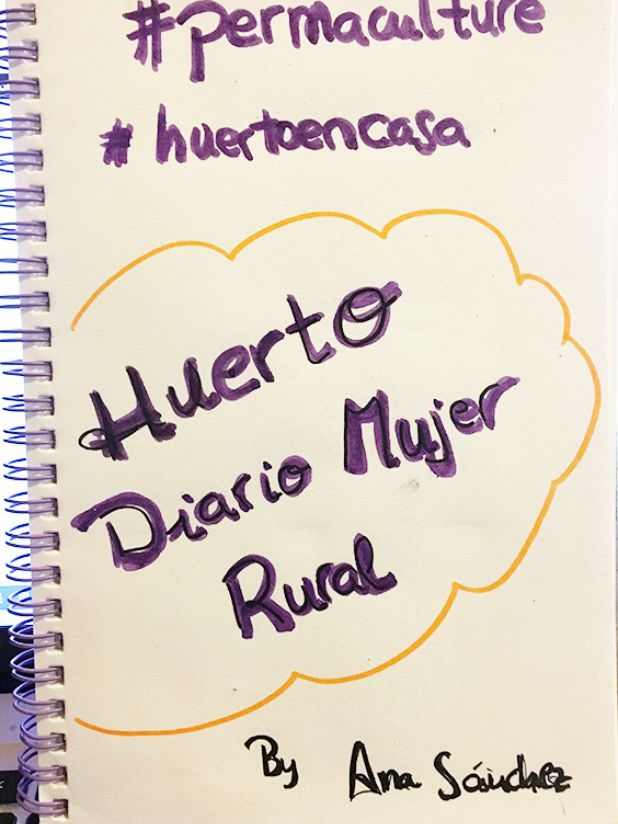 #permaculture
#huertoencasa
Huerto
Diario Mujer
Rural
By Ana Sánchez